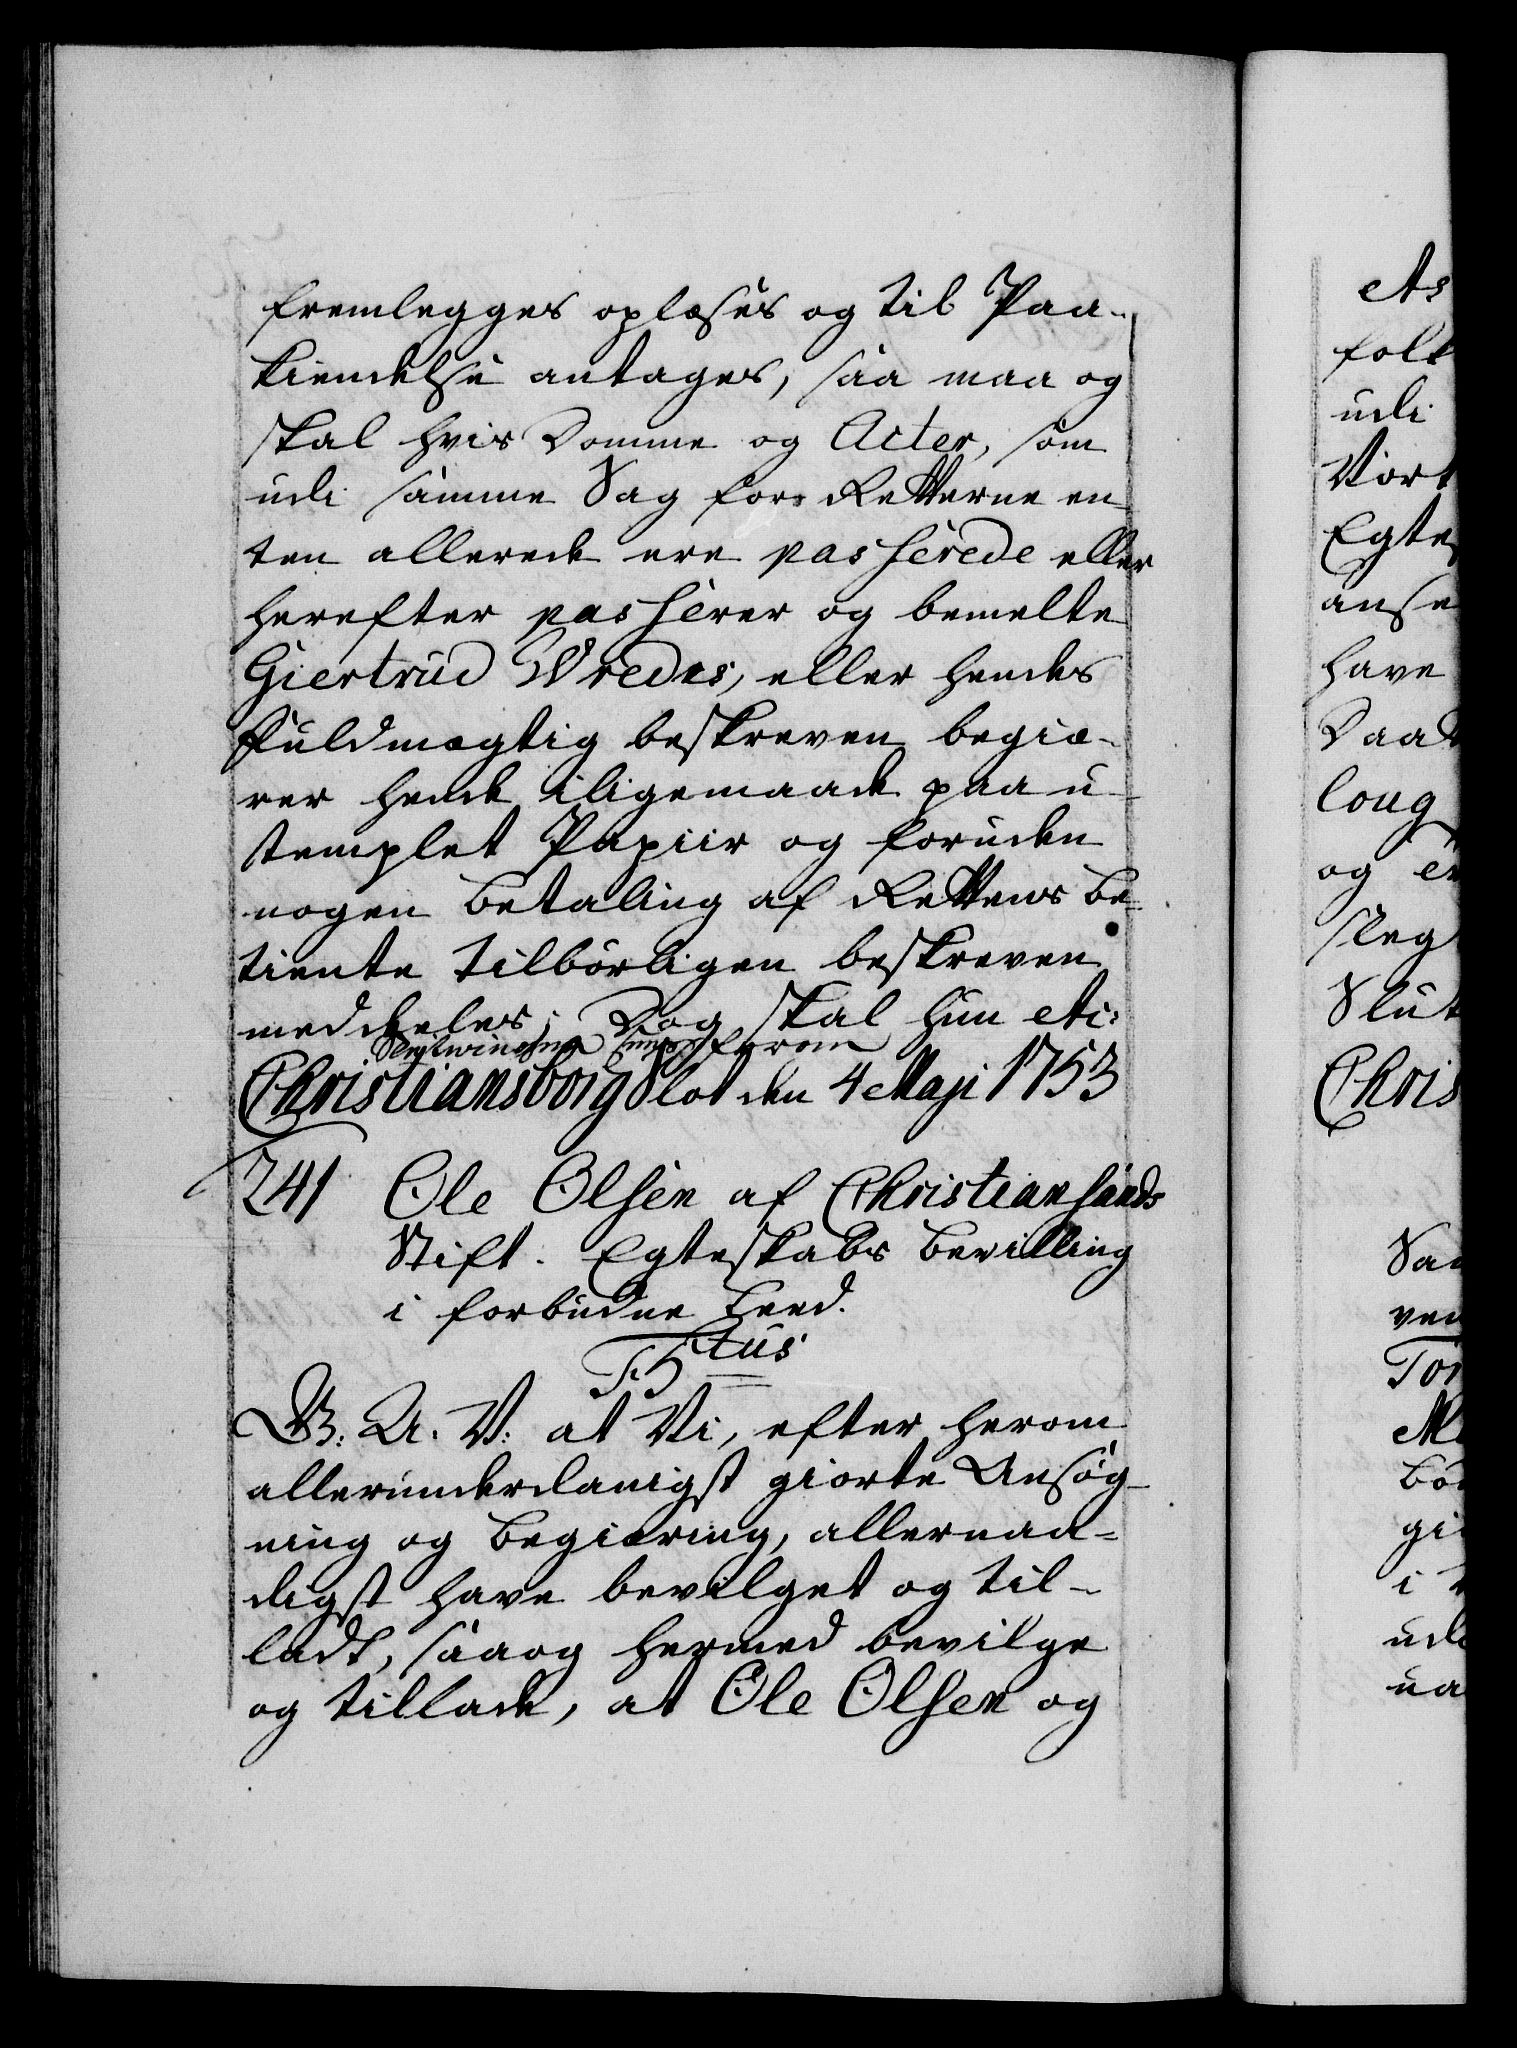 fremlegges oplæses og til Paa-
kiendelse antages, saa maa og
skal hvis Domme og Acter, som
udi samme Sag for Retterne en-
ten allerede ere passerede eller
herefter passerer og bemelte
Giertrud Wredes, eller hendes
Fuldmægtig beskreven begiæ-
rer hende iligemaade paa u-
stemplet Papiir og foruden
nogen Betaling af Rettens Be-
tiente tilbørligen beskreven
meddeeles; Dog skal hun etc:
Christiansborg Slot den 4 Maji 1753
241 Ole Olsen af Christiansands
Stift. Egteskabs Bevilling
i forbudne Leed.
F. 5tus
G. A. V: at Vi, efter herom
allerunderdanigst giorte Ansøg-
ning og Begiæring, allernaa-
digst have bevilget og til-
ladt, saa og hermed bevilge
og tillade, at Ole Olsen og
As
folk
udi
Vort
Egte
anse
have
Daad
loug
og
Sleg
Slut
Chris